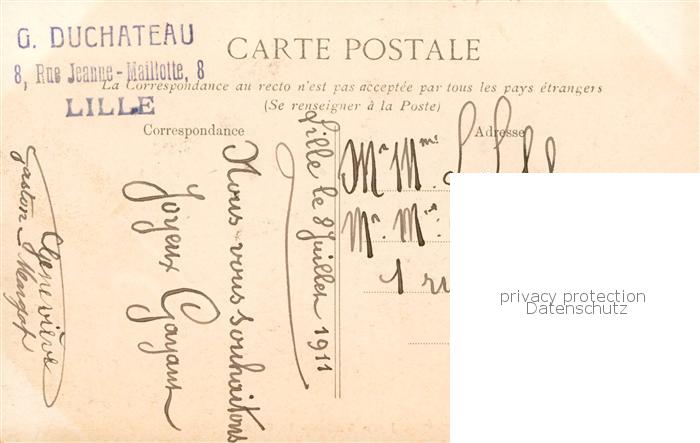 G. DUCHATEAU
8, Rue Jeanne-Maillotte, 8
LILLE
CARTE POSTALE
La Correspondance au recto n'est pas acceptée par tous les pays étrangers
(Se renseigner à la Poste)
Correspondance
Adresse
Lille le 8 Juillet 1911
Nous vous souhaitons
Joyeux Gayant
Geneviève
Gaston
Mr Mme
Mr. Mme
1 ru
privacy protection
Datenschutz